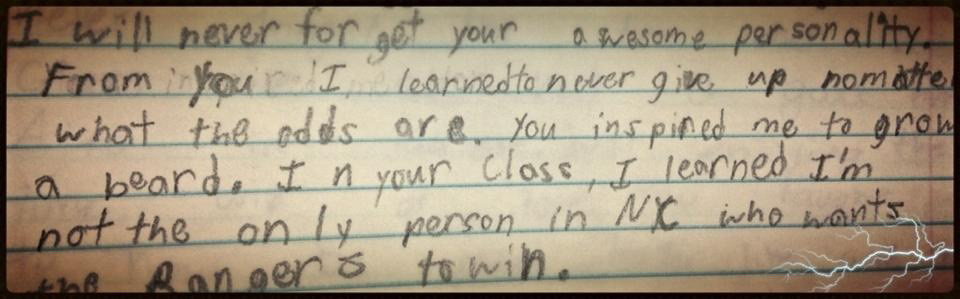 I will never forget your awesome personality.
From you I learned to never give up nomatte
what the odds are. You inspired me to grow
a beard. In your Class, I learned I'm
not the only person in NC who wants
the Rangers to win.